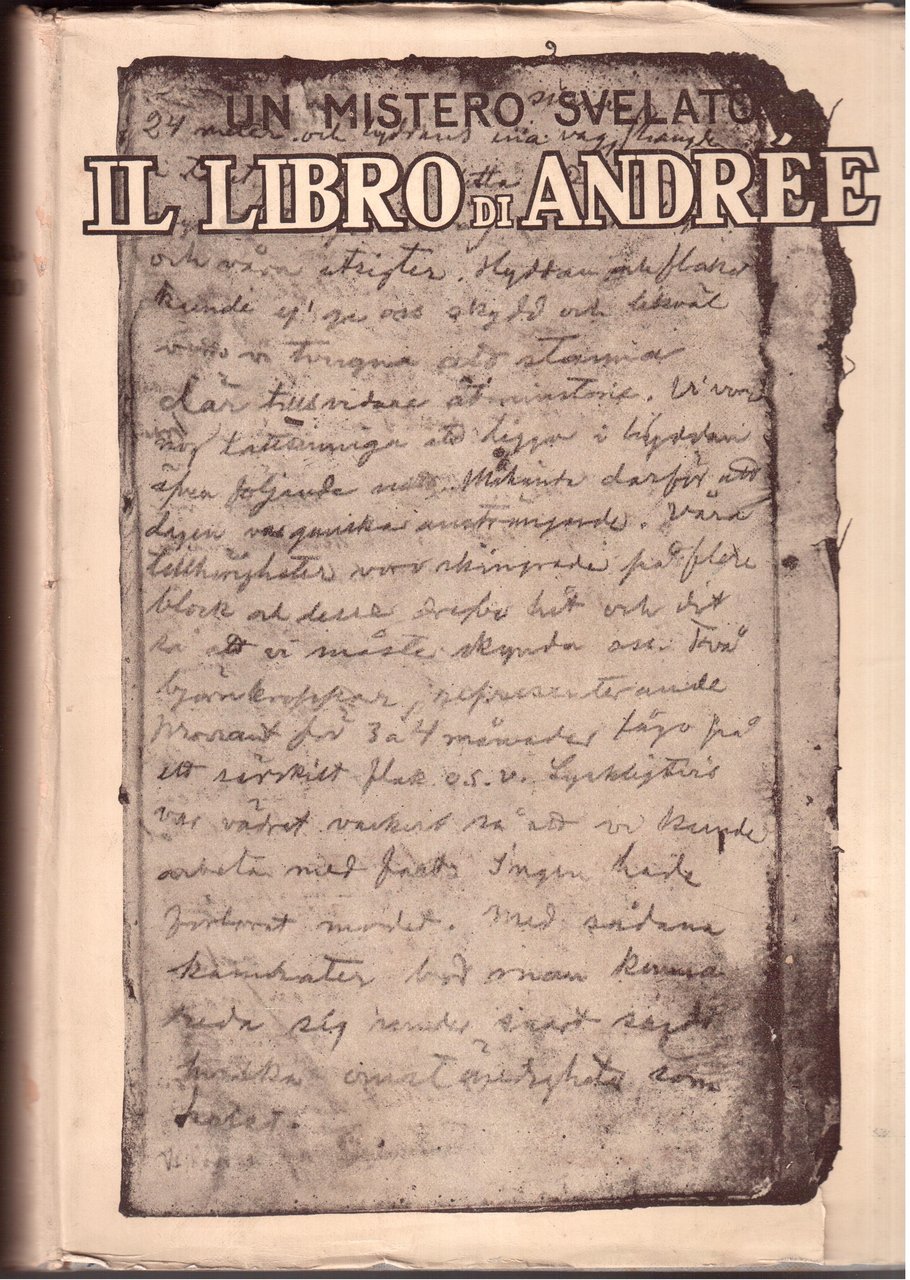 UN MISTERO SVELATO
24 meter och
IL LIBRO DI ANDRÉE
och våra utsigter. Hyddan och flaket
kunde ej ge oss skydd och likväl
voro vi tvungna att stanna
där tillsvidare åtminstone. Vi voro
nog lättsinniga att ligga i hyddan
äfven följande natt. därför att
dagen var ganska ansträngande. Våra
tillhörigheter voro skingrade på flere
block och dessa drefvo hit och dit
så att vi måste skynda oss. Två
björnkroppar, representerande
proviant för 3 à 4 månader lågo på
ett särskilt flak o.s.v. Lyckligtvis
var vädret vackert så att vi kunde
arbeta med fart. Ingen hade
förlorat modet. Med sådana
kamrater bör man kunna
reda sig under snart sagdt
hvilka omständigheter som
helst.